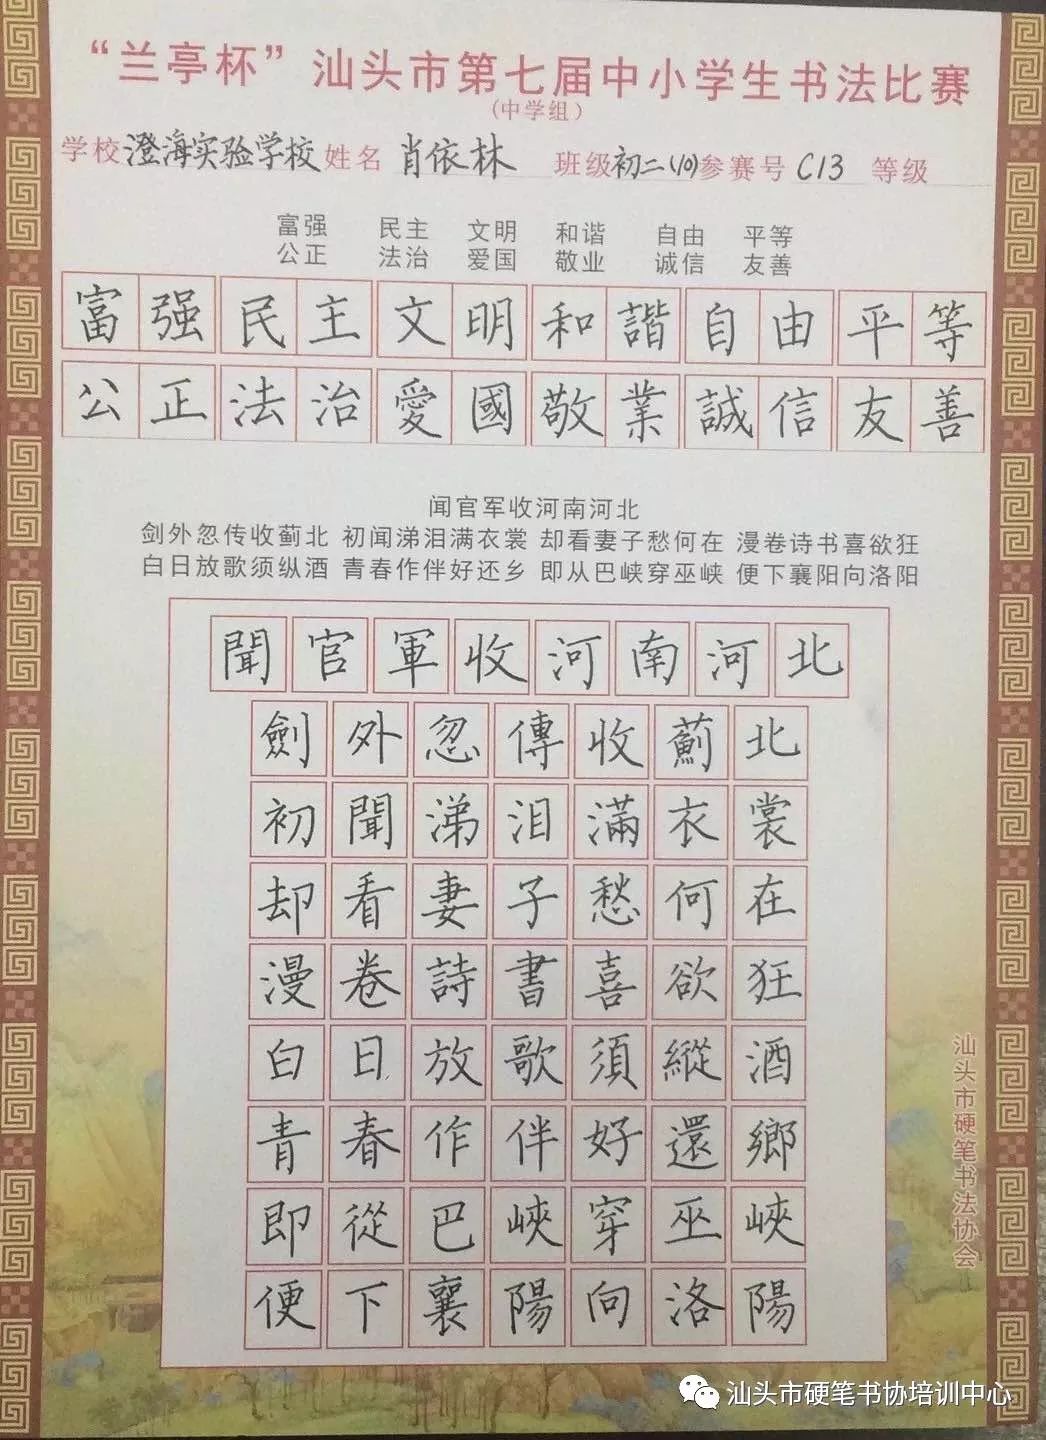 “兰亭杯”汕头市第七届中小学生书法比赛
（中学组）
学校 澄海实验学校 姓名 肖依林 班级 初二(10) 参赛号 C13 等级
富强 民主 文明 和谐 自由 平等
公正 法治 爱国 敬业 诚信 友善
富强民主文明和諧自由平等
公正法治愛國敬業誠信友善
闻官军收河南河北
剑外忽传收蓟北 初闻涕泪满衣裳 却看妻子愁何在 漫卷诗书喜欲狂
白日放歌须纵酒 青春作伴好还乡 即从巴峡穿巫峡 便下襄阳向洛阳
聞官軍收河南河北
劍外忽傳收薊北
初聞涕泪滿衣裳
却看妻子愁何在
漫卷詩書喜欲狂
白日放歌須縱酒
青春作伴好還鄉
即從巴峽穿巫峽
便下襄陽向洛陽
汕头市硬笔书法协会
汕头市硬笔书协培训中心